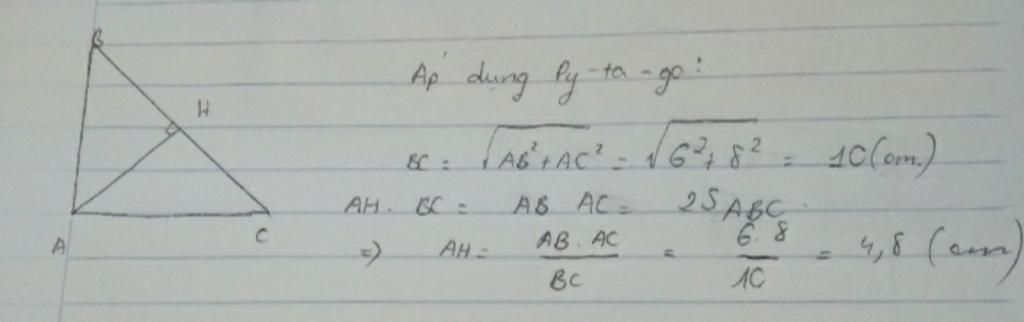 B
H
A
C
Áp dụng Py-ta-go:
BC = √AB²+AC² = √6²+8² = 10(cm.)
AH. BC = AB AC = 2S ABC.
=) AH = AB . AC / BC = 6. 8 / 10 = 4,8 (cm)